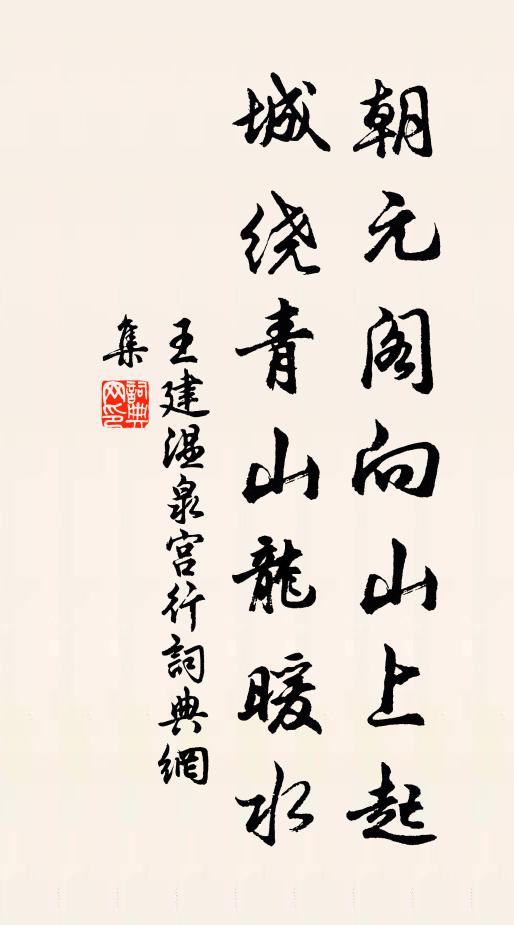 朝元阁向山上起
城绕青山龍暖水
王建温泉宫行詞典網
集
詞典
网印